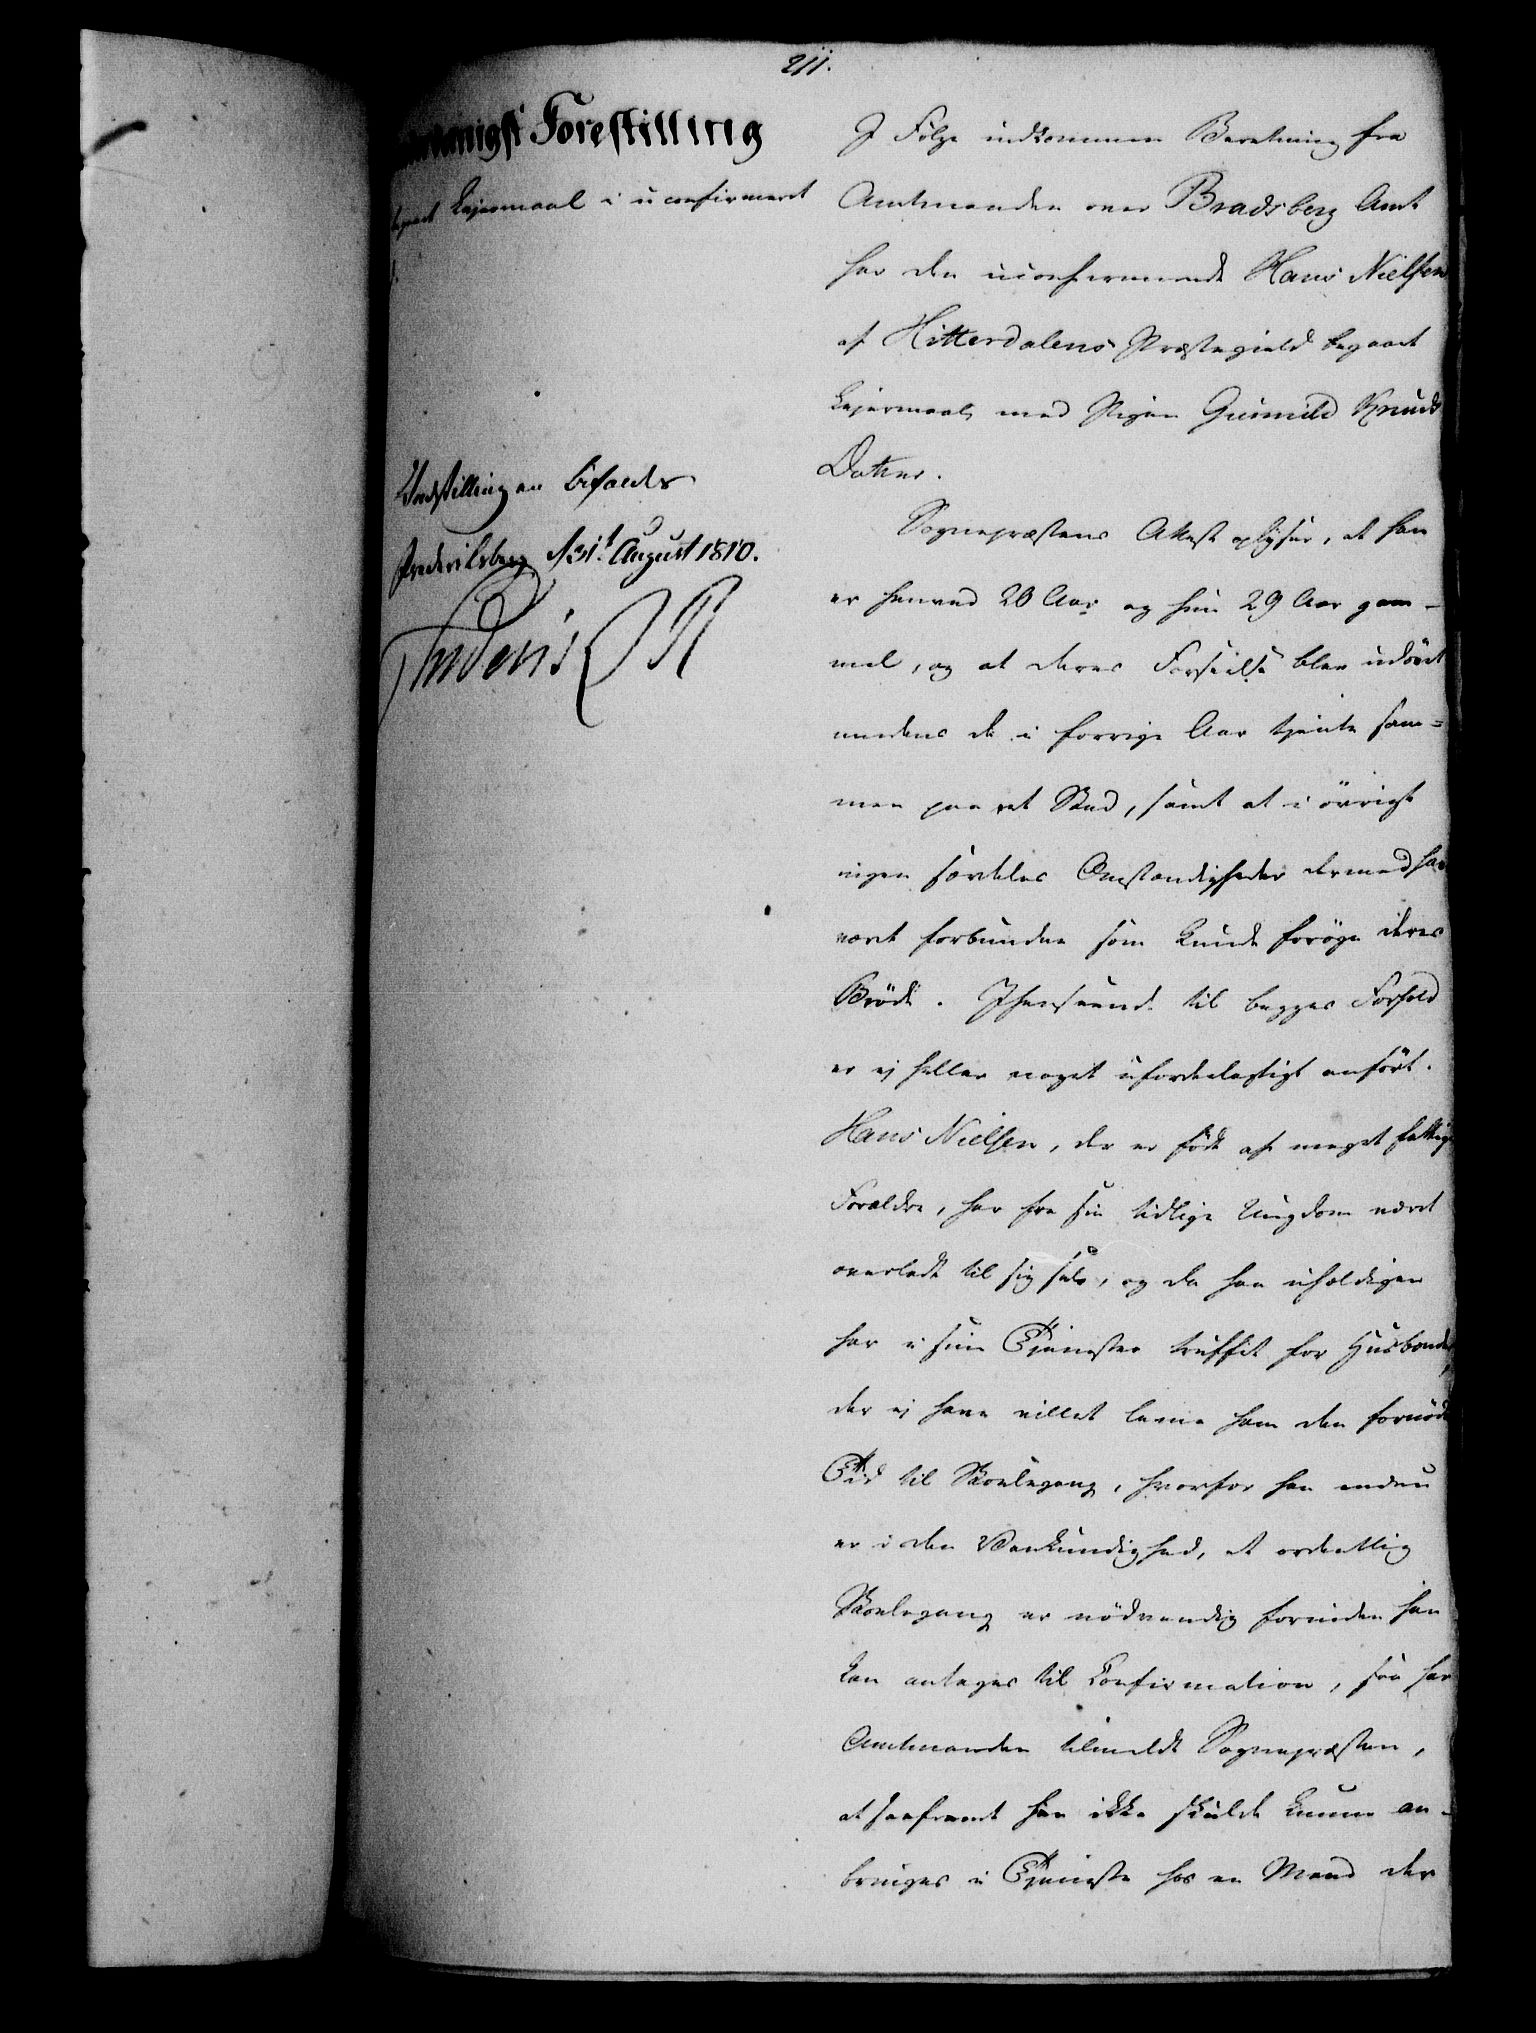 211.
Forestilling
begaaet Lejermaal i uconfirmeret
Indstillingen bifaldes
Frederiksberg d. 31t August 1810.
Frederik R
I Følge indkommen Beretning fra
Amtmanden over Bradsberg Amt
har den uconfirmerede Hans Nielsen
af Hitterdalens Præstegield begaaet
Lejermaal med Pigen Gunnild Knuds
Datter.
Sognepræstens Attest oplyser, at han
er henved 20 Aar og hun 29 Aar gam-
mel, og at deres Forseelse blev udøvet
medens de i forrige Aar tjente sam=
men paa et Sted, samt at i øvrigt
ingen særdeles Omstændigheder dermed har
været forbunden som kunde forøge deres
Brøde. Ihenseende til begges Forhold
er ej heller noget ufordeelagtigt anført.
Hans Nielsen, der er født af meget fattige
Forældre, har fra sin tidlige Ungdom været
overladt til sig selv, og da han uheldigen
har i sine Tjenester truffet for Husbonder,
der ej have villet levne ham den fornødne
Tid til Skolegang, hvorfor han endnu
er i den Vankundighed, at ordentlig
Skolegang er nødvendig forinden han
kan antages til Confirmation, saa har
Amtmanden tilmeldt Sognepræsten,
at saafremt han ikke skulde kunne an-
bringes i Tjeneste hos en Mand der